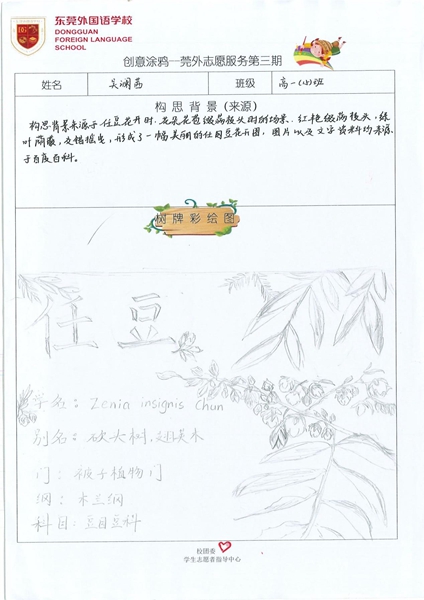 东莞外国语学校
DONGGUAN
FOREIGN LANGUAGE
SCHOOL
创意涂鸦—莞外志愿服务第三期
姓名
吴湖茜
班级
高一(小)班
构思背景(来源)
构思背景来源于任豆花开时,花朵花苞缀满枝头时的场景.红艳缀满枝头,绿
叶丽服,交错摇曳,形成了一幅美丽的任豆花开图,图片以及文字资料均来源
于百度百科。
树牌彩绘图
任豆
学名:Zenia insignis Chun
别名:砍头树,翅荚木
门:被子植物门
纲:木兰纲
科目:豆目豆科
校团委
学生志愿者指导中心